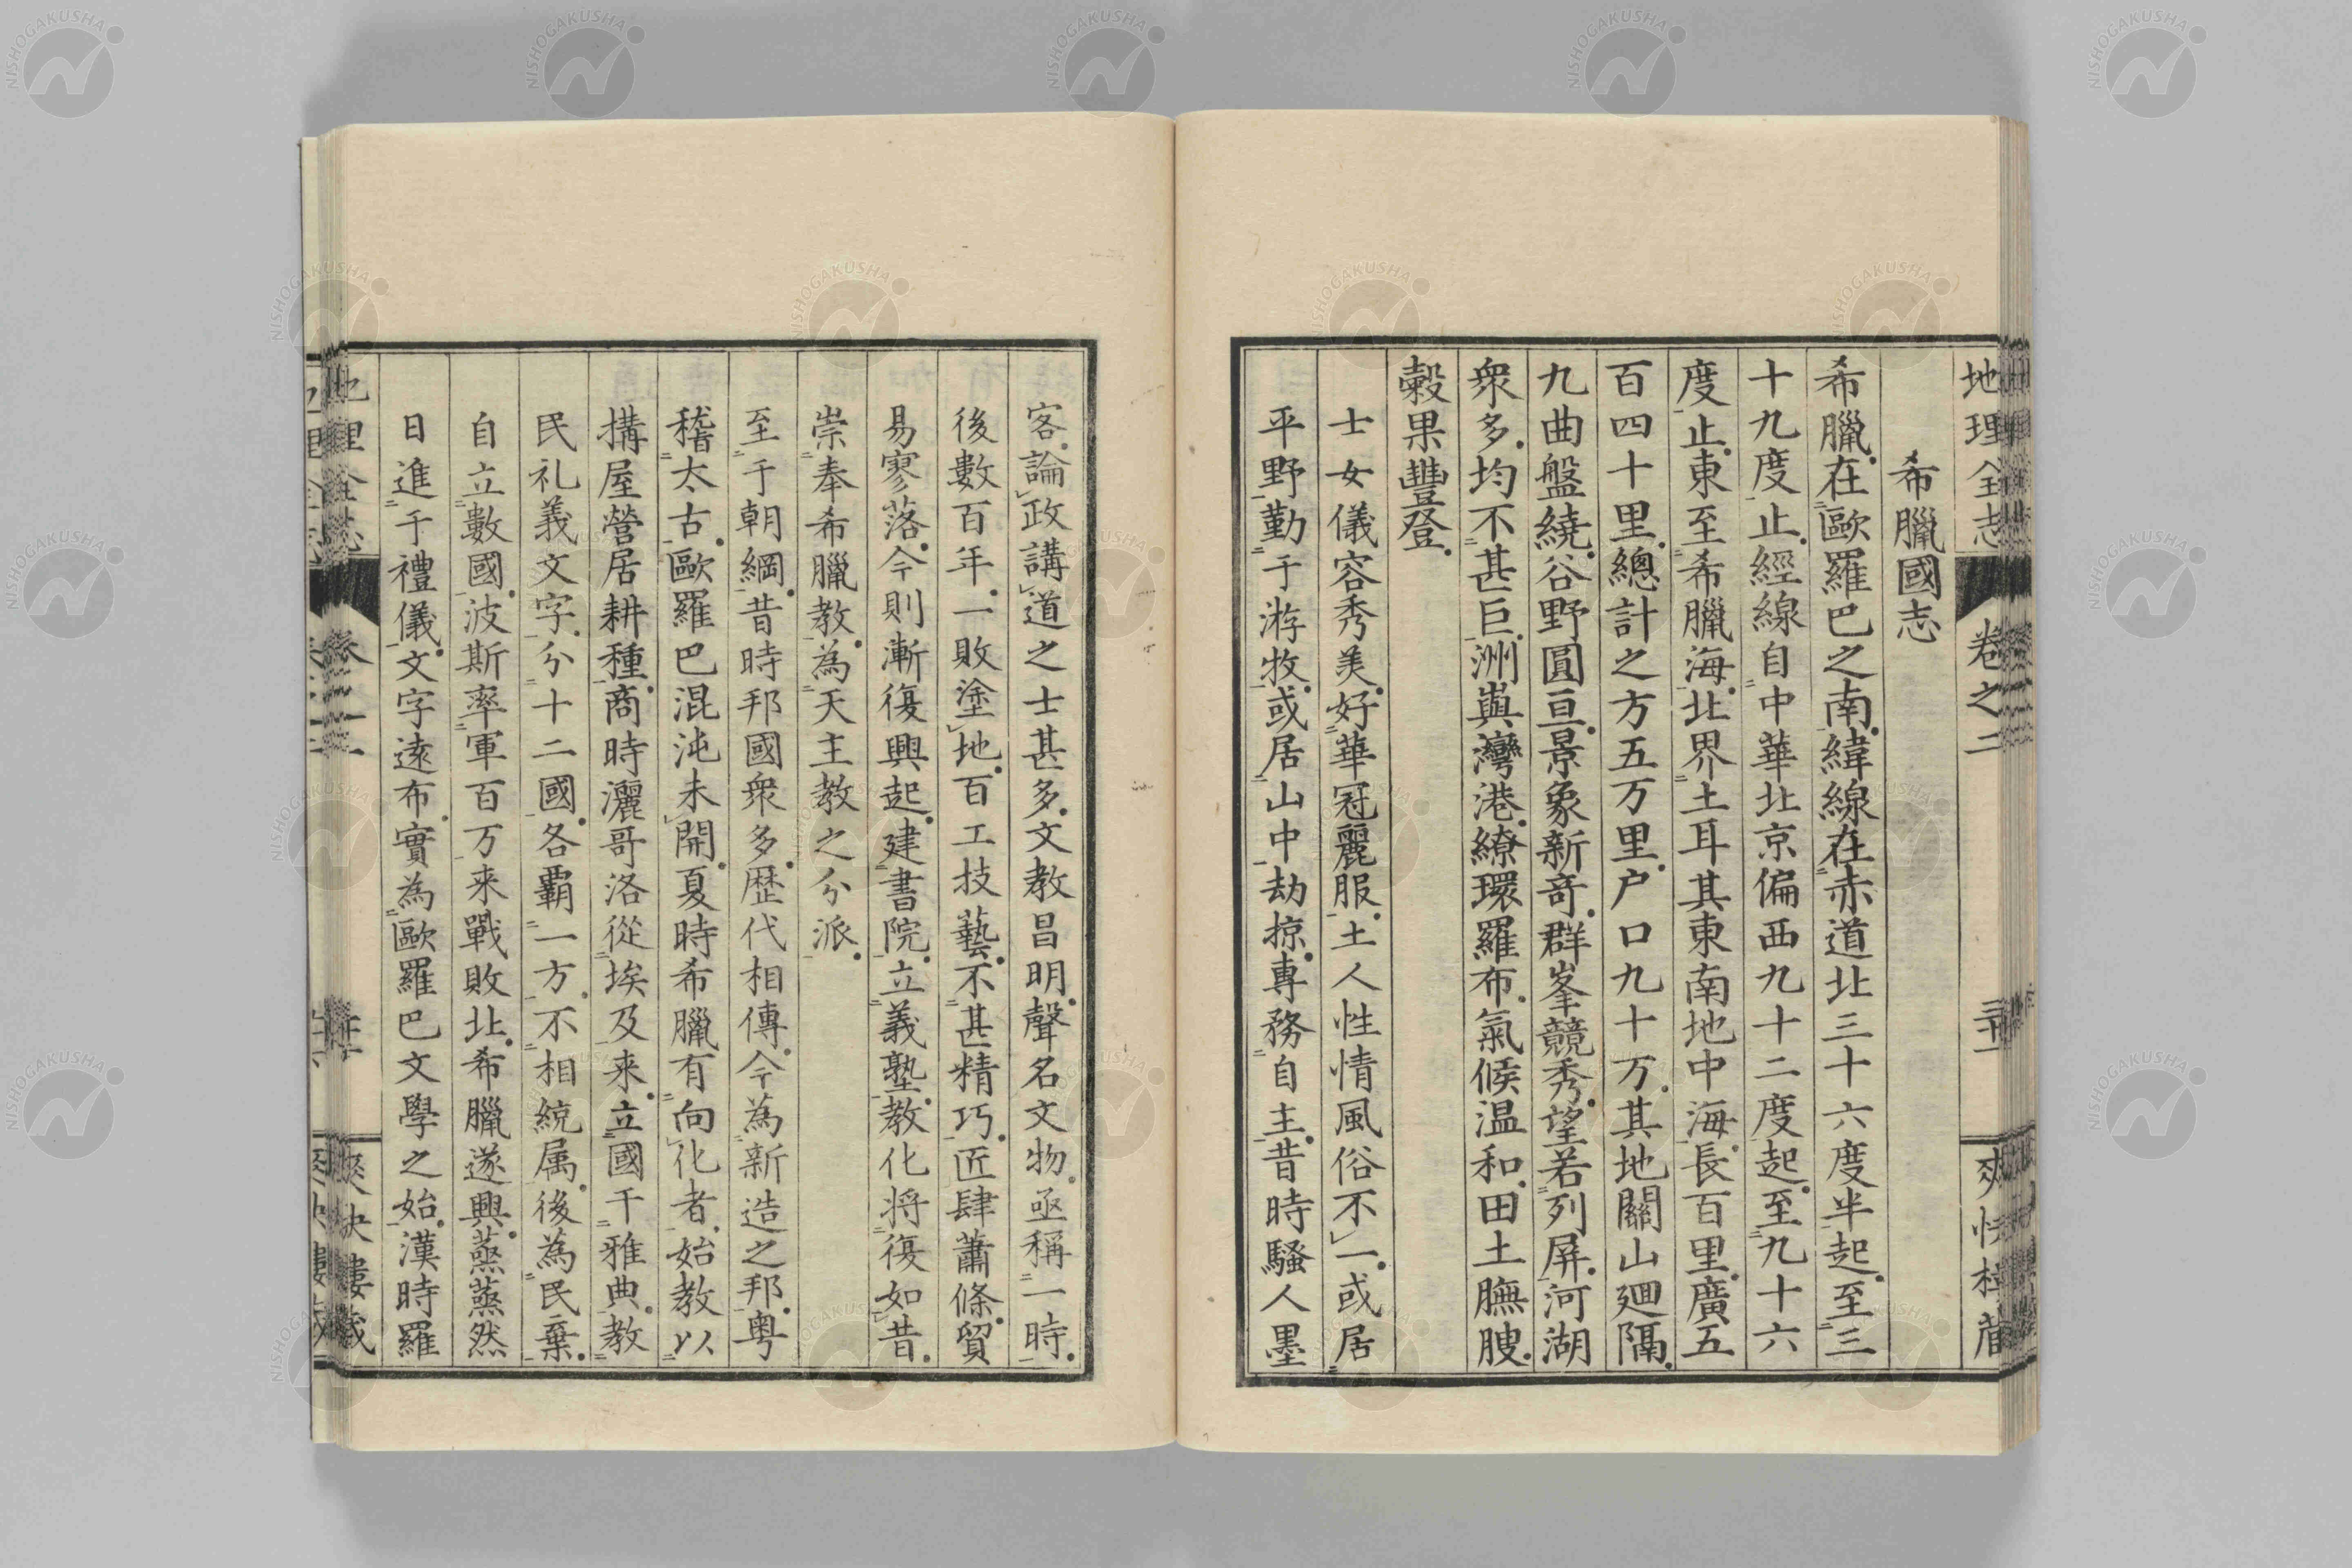 地理全志 卷之二
希臘國志
希臘在歐羅巴之南緯線在赤道北三十六度半起至三
十九度止經線自中華北京偏西九十二度起至九十六
度止東至希臘海北界土耳其東南地中海長百里廣五
百四十里總計之方五万里户口九十万其地關山廻隔
九曲盤繞谷野圓亘景象新奇群峯競秀望若列屏河湖
衆多均不甚巨洲與灣港繚環羅布氣候温和田土膴腴
穀果豐登
士女儀容秀美好華冠麗服土人性情風俗不一或居
平野勤于游牧或居山中劫掠專務自主昔時騷人墨
客論政講道之士甚多文教昌明聲名文物亟稱一時
後數百年一敗塗地百工技藝不甚精巧匠肆蕭條貿
易寥落今則漸復興起建書院立義塾教化将復如昔
崇奉希臘教為天主教之分派
至于朝綱昔時邦國衆多歴代相傳今為新造之邦粤
稽太古歐羅巴混沌未開夏時希臘有向化者始教以
搆屋營居耕種商時灑哥洛從埃及来立國于雅典教
民礼義文字分十二國各覇一方不相統属後為民棄
自立數國波斯率軍百万来戰敗北希臘遂興蒸蒸然
日進于禮儀文字遠布實為歐羅巴文學之始漢時羅
NISHOGAKUSHA